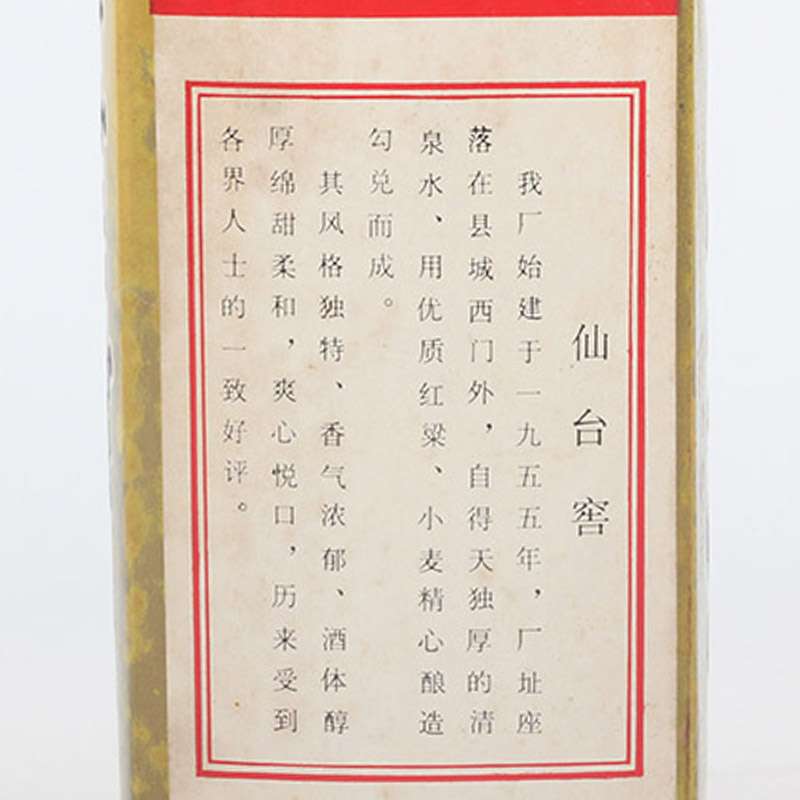 仙台窖
我厂始建于一九五五年，厂址座
落在县城西门外，自得天独厚的清
泉水、用优质红粱、小麦精心酿造
勾兑而成。
其风格独特、香气浓郁、酒体醇
厚绵甜柔和，爽心悦口，历来受到
各界人士的一致好评。